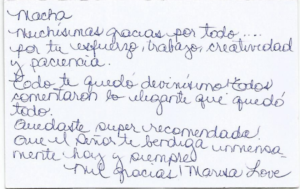 Macha
Muchísimas gracias por todo....
por tu esfuerzo, trabajo, creatividad
y paciencia.
Todo te quedó devinísimo! Todos
comentaron lo elegante que quedó
todo.
Quedaste super recomendada!
Que el Señor te bendiga inmensa-
mente hoy y siempre!
Mil gracias! Marisa Love